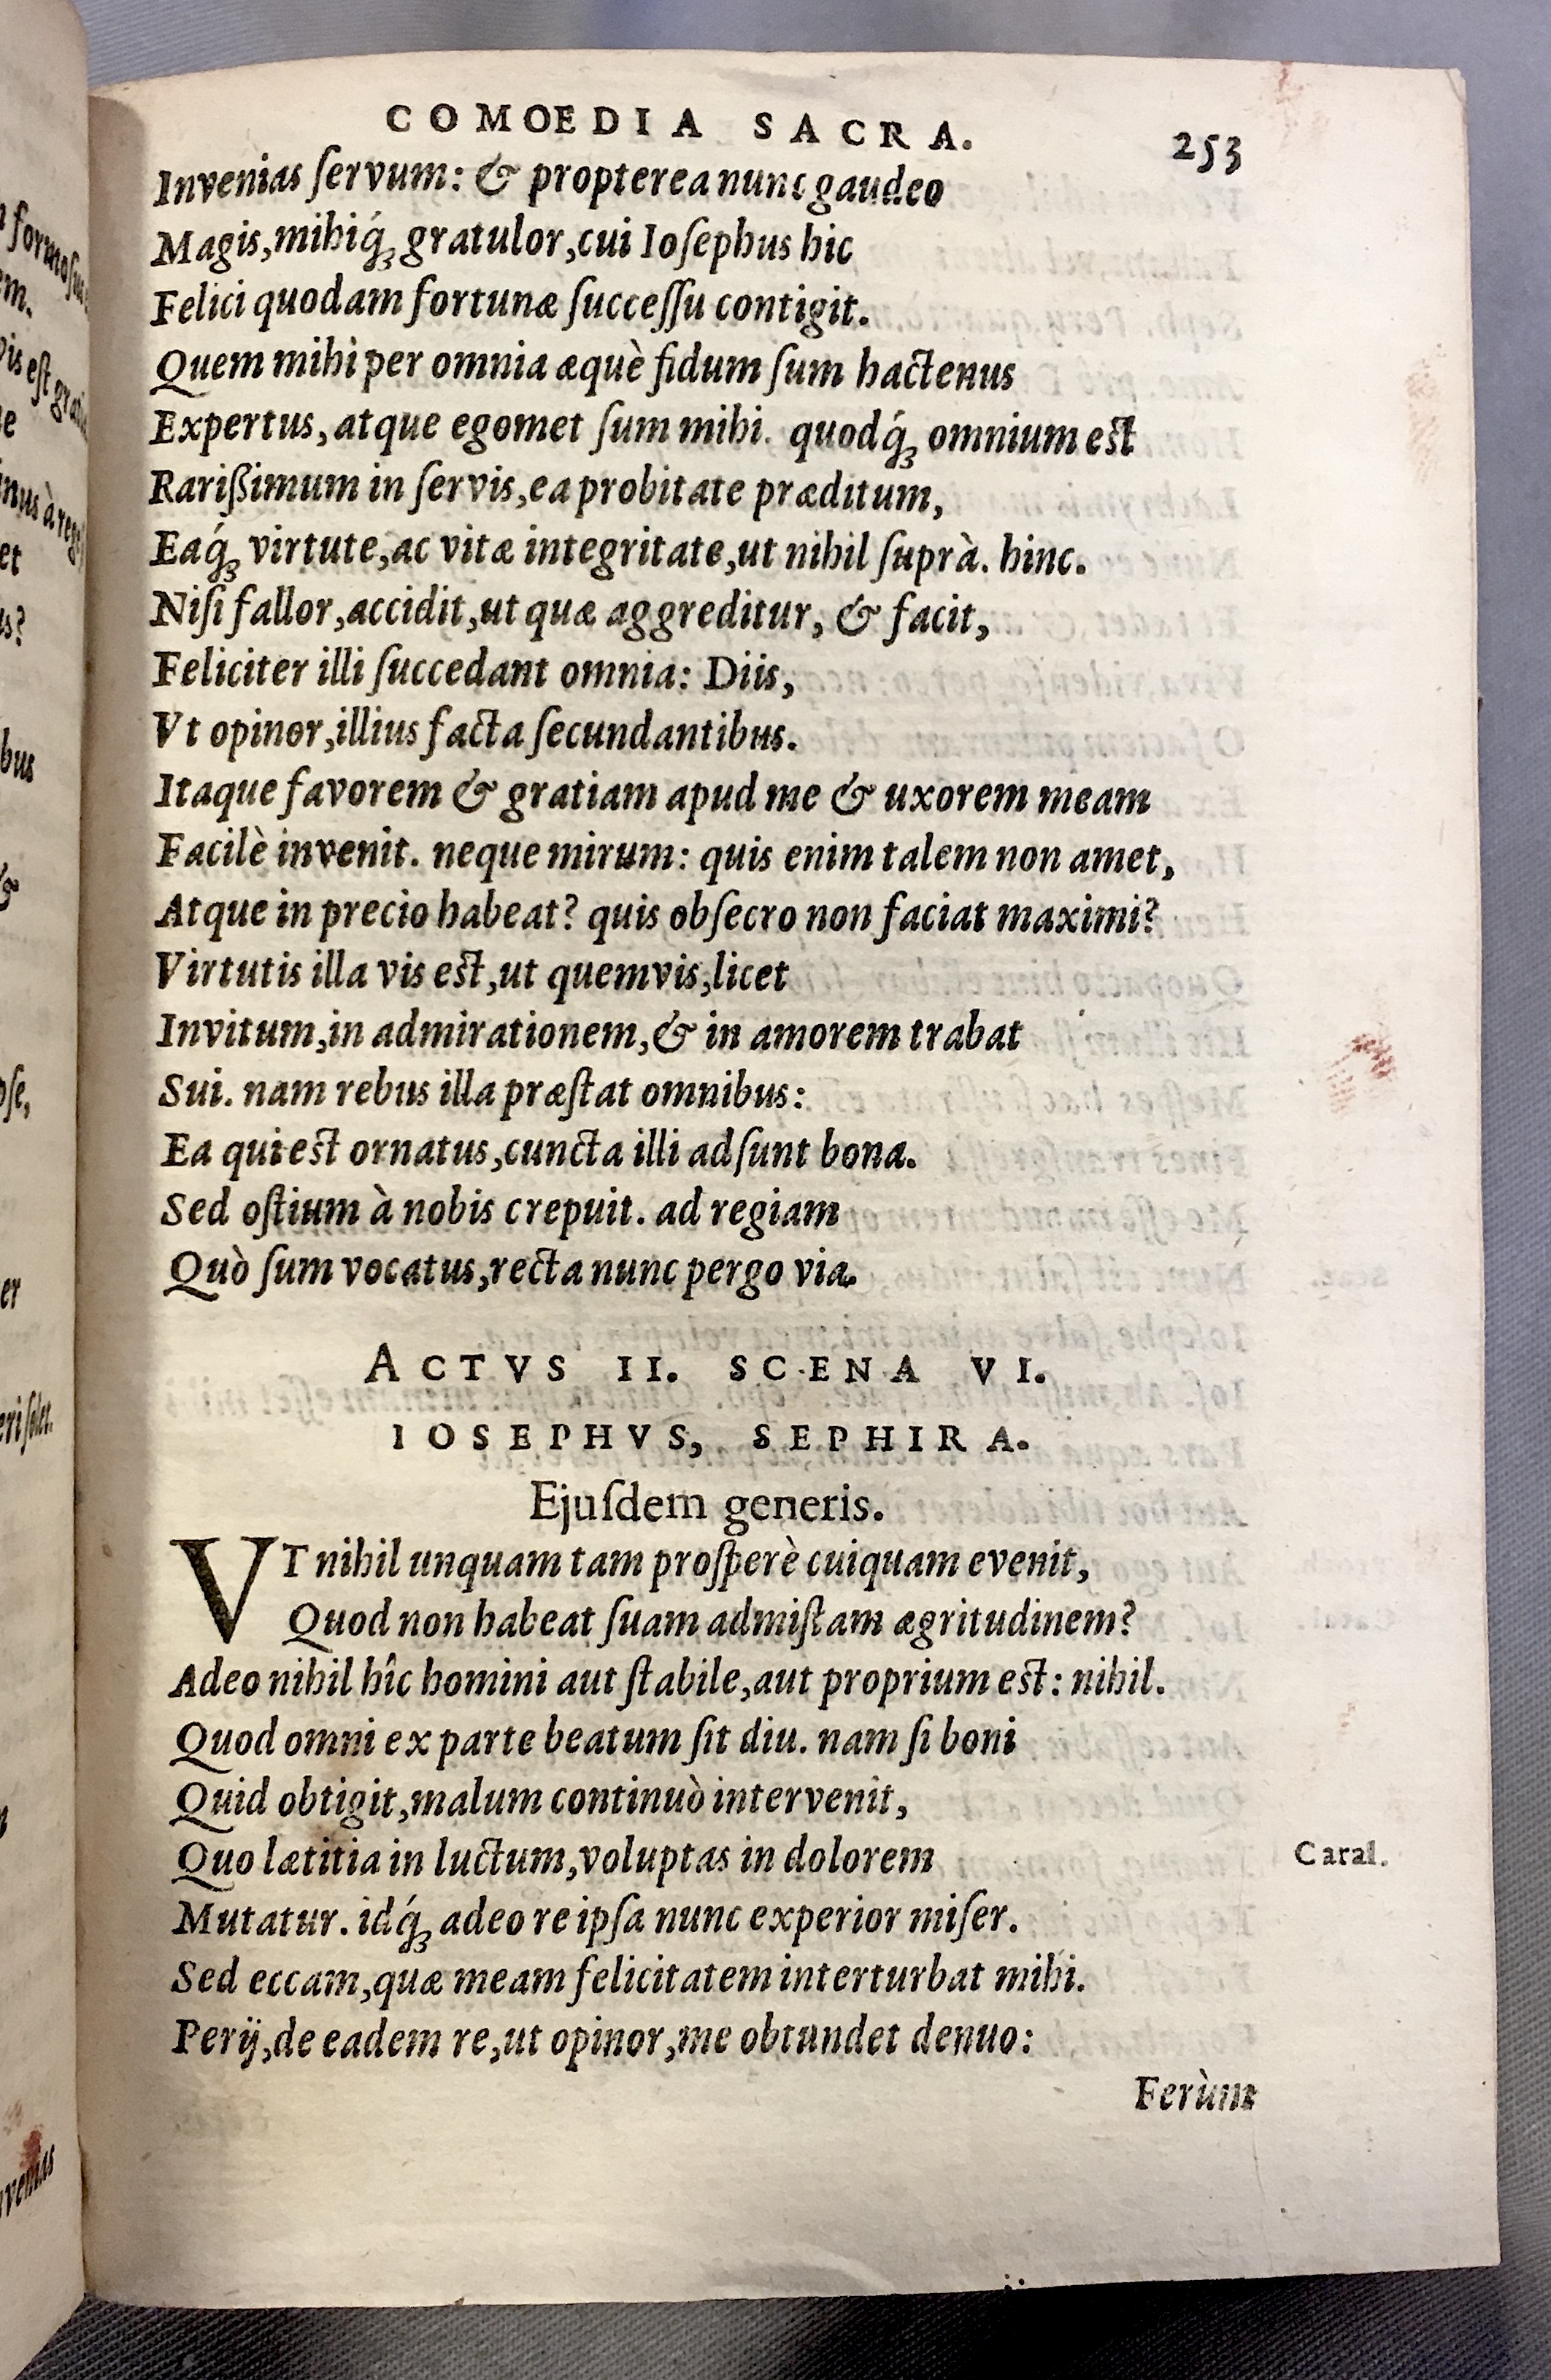 COMOEDIA SACRA. 253
Invenias ſervum: & propterea nunc gaudeo
Magis, mihiq́ꝫ gratulor, cui Ioſephus hic
Felici quodam fortunæ ſucceſſu contigit.
Quem mihi per omnia æquè fidum ſum hactenus
Expertus, atque egomet ſum mihi. quodq́ꝫ omnium eſt
Rarißimum in ſervis, ea probitate præditum,
Eaq́ꝫ virtute, ac vitæ integritate, ut nihil ſuprà. hinc.
Niſi fallor, accidit, ut quæ aggreditur, & facit,
Feliciter illi ſuccedant omnia: Diis,
Vt opinor, illius facta ſecundantibus.
Itaque favorem & gratiam apud me & uxorem meam
Facilè invenit. neque mirum: quis enim talem non amet,
Atque in precio habeat? quis obſecro non faciat maximi?
Virtutis illa vis eſt, ut quemvis, licet
Invitum, in admirationem, & in amorem trahat
Sui. nam rebus illa præſtat omnibus:
Ea qui eſt ornatus, cuncta illi adſunt bona.
Sed oſtium à nobis crepuit. ad regiam
Quò ſum vocatus, recta nunc pergo via.
ACTVS II. SCENA VI.
IOSEPHVS, SEPHIRA.
Ejuſdem generis.
VT nihil unquam tam proſperè cuiquam evenit,
Quod non habeat ſuam admiſtam ægritudinem?
Adeo nihil hîc homini aut ſtabile, aut proprium eſt: nihil.
Quod omni ex parte beatum ſit diu. nam ſi boni
Quid obtigit, malum continuò intervenit,
Quo lætitia in luctum, voluptas in dolorem
Caral.
Mutatur. idq́ꝫ adeo re ipſa nunc experior miſer.
Sed eccam, quæ meam felicitatem interturbat mihi.
Perij, de eadem re, ut opinor, me obtundet denuo:
Ferùm